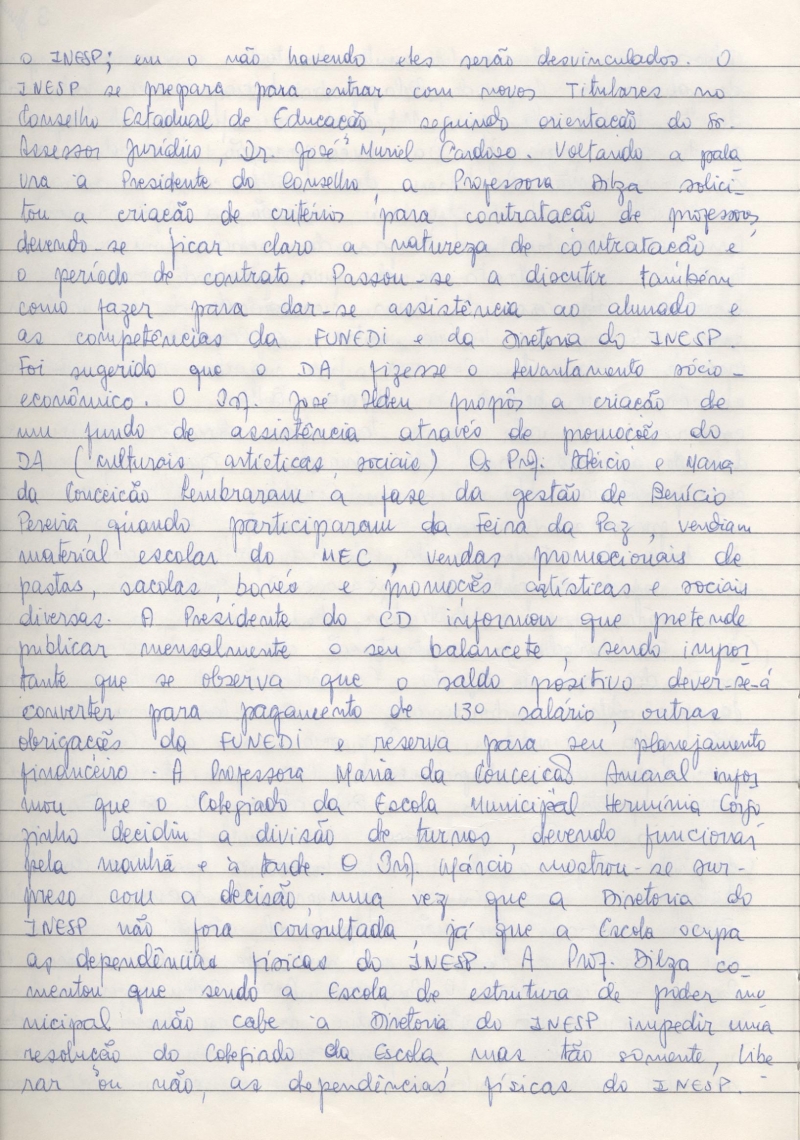 o INESP; em o não havendo eles serão desvinculados. O
INESP se prepara para entrar com novos Titulares no
Conselho Estadual de Educação, seguindo orientação do Sr.
Assessor Jurídico, Dr. José Muriel Cardoso. Voltando a pala
vra a Presidente do Conselho, a Professora Dilza solici-
tou a criação de critérios para contratação de professores,
devendo-se ficar claro a natureza de contratação e
o período de contrato. Passou-se a discutir também
como fazer para dar-se assistência ao alunado e
as competências da FUNEDi e da Diretoria do INESP.
Foi sugerido que o DA fizesse o levantamento sócio-
econômico. O Prof. José propôs a criação de
um fundo de assistência através de promoções do
DA (culturais, artísticas, sociais) Os Prof. e Maria
da Conceição lembraram a fase da gestão de Benício
Pereira, quando participaram da Feira da Paz, vendiam
material escolar do MEC, vendas promocionais de
pastas, sacolas, bonés e promoções artísticas e sociais
diversas. A Presidente do CD informou que pretende
publicar mensalmente o seu balancete, sendo impor
tante que se observa que o saldo positivo dever-se-á
converter para pagamento de 13º salário, outras
obrigações da FUNEDi e reserva para seu planejamento
financeiro. A Professora Maria da Conceição Amaral infor
mou que o Colegiado da Escola Municipal Hermínia Corgo
zinho decidiu a divisão de turnos, devendo funcionar
pela manhã e à tarde. O Prof. Márcio mostrou-se sur-
preso com a decisão, uma vez que a Diretoria do
INESP não fora consultada, já que a Escola ocupa
as dependências físicas do INESP. A Prof. Dilza co-
mentou que sendo a Escola de estrutura de poder mu
nicipal não cabe a Diretoria do INESP impedir uma
resolução do Colegiado da Escola, mas tão somente, libe
rar ou não, as dependências físicas do INESP.